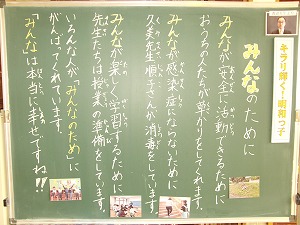 キラリ輝く!明和っ子
みんなのために
みんなが安全に活動できるために
おうちの人たちが草かりをしてくれます。
みんなが感染症にならないために
久美先生、順子さんが消毒をしています。
みんなが楽しく学習するために
先生たちは授業の準備をしています。
いろんな人が「みんなのため」に
がんばってくれています。
「みんな」は本当に幸せですね!!